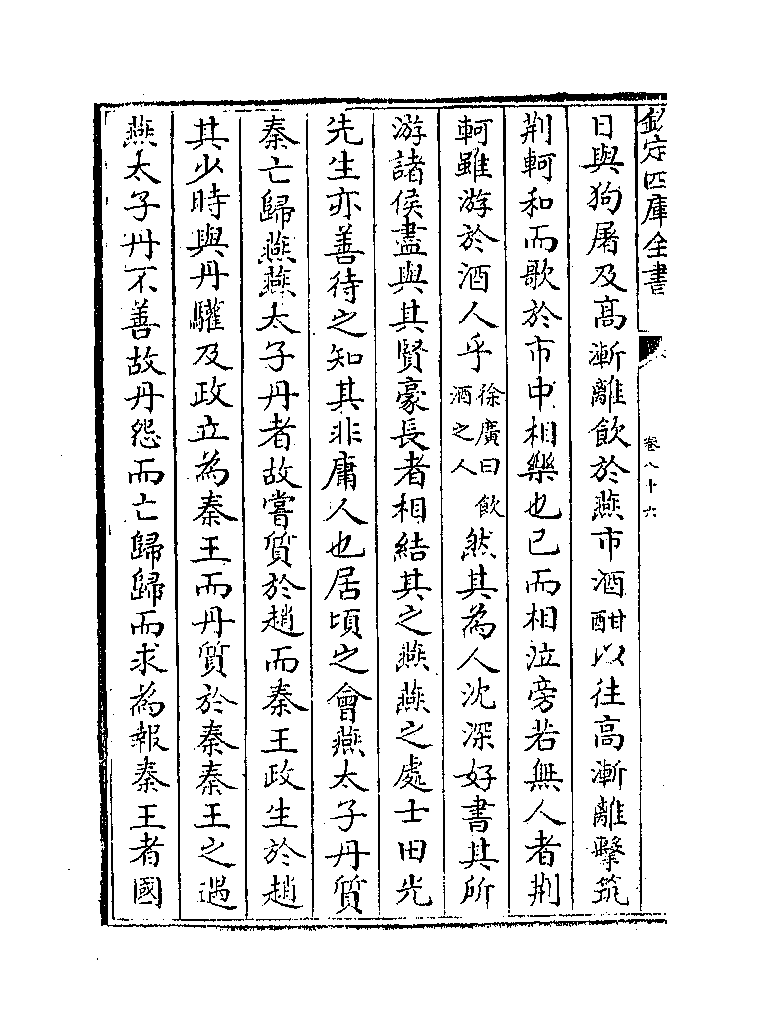 欽定四庫全書
卷八十六
日與狗屠及高漸離飲於燕市酒酣以往高漸離擊筑
荆軻和而歌於市中相樂也已而相泣旁若無人者荆
軻雖游於酒人乎徐廣曰飲酒之人然其為人沈深好書其所
游諸侯盡與其賢豪長者相結其之燕燕之處士田光
先生亦善待之知其非庸人也居頃之會燕太子丹質
秦亡歸燕燕太子丹者故嘗質於趙而秦王政生於趙
其少時與丹驩及政立為秦王而丹質於秦秦王之遇
燕太子丹不善故丹怨而亡歸歸而求為報秦王者國